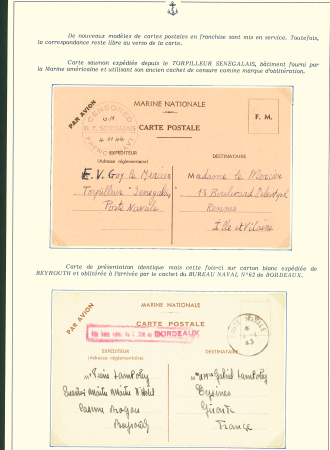 De nouveaux modèles de cartes postales en franchise sont mis en service. Toutefois,
la correspondance reste libre au verso de la carte.
Carte saumon expédiée depuis le TORPILLEUR SENEGALAIS, bâtiment fourni par
la Marine américaine et utilisant son ancien cachet de censure comme marque d'oblitération.
MARINE NATIONALE
PAR AVION
CENSORED
F. M.
CARTE POSTALE
EXPÉDITEUR
(Adresse réglementaire)
DESTINATAIRE
E.V. Guy le Mercier
Torpilleur "Senegalais"
Poste Navale
Madame le
13 Boulevard
Rennes
Ille et Vilaine
Carte de présentation identique mais cette fois-ci sur carton blanc expédiée de
BEYROUTH et oblitérée à l'arrivée par le cachet du BUREAU NAVAL N°62 de BORDEAUX.
MARINE NATIONALE
PAR AVION
CARTE POSTALE
BORDEAUX
EXPÉDITEUR
(Adresse réglementaire)
DESTINATAIRE
Quartier Maître
Caserne
Beyrouth
Eysines
Gironde
France